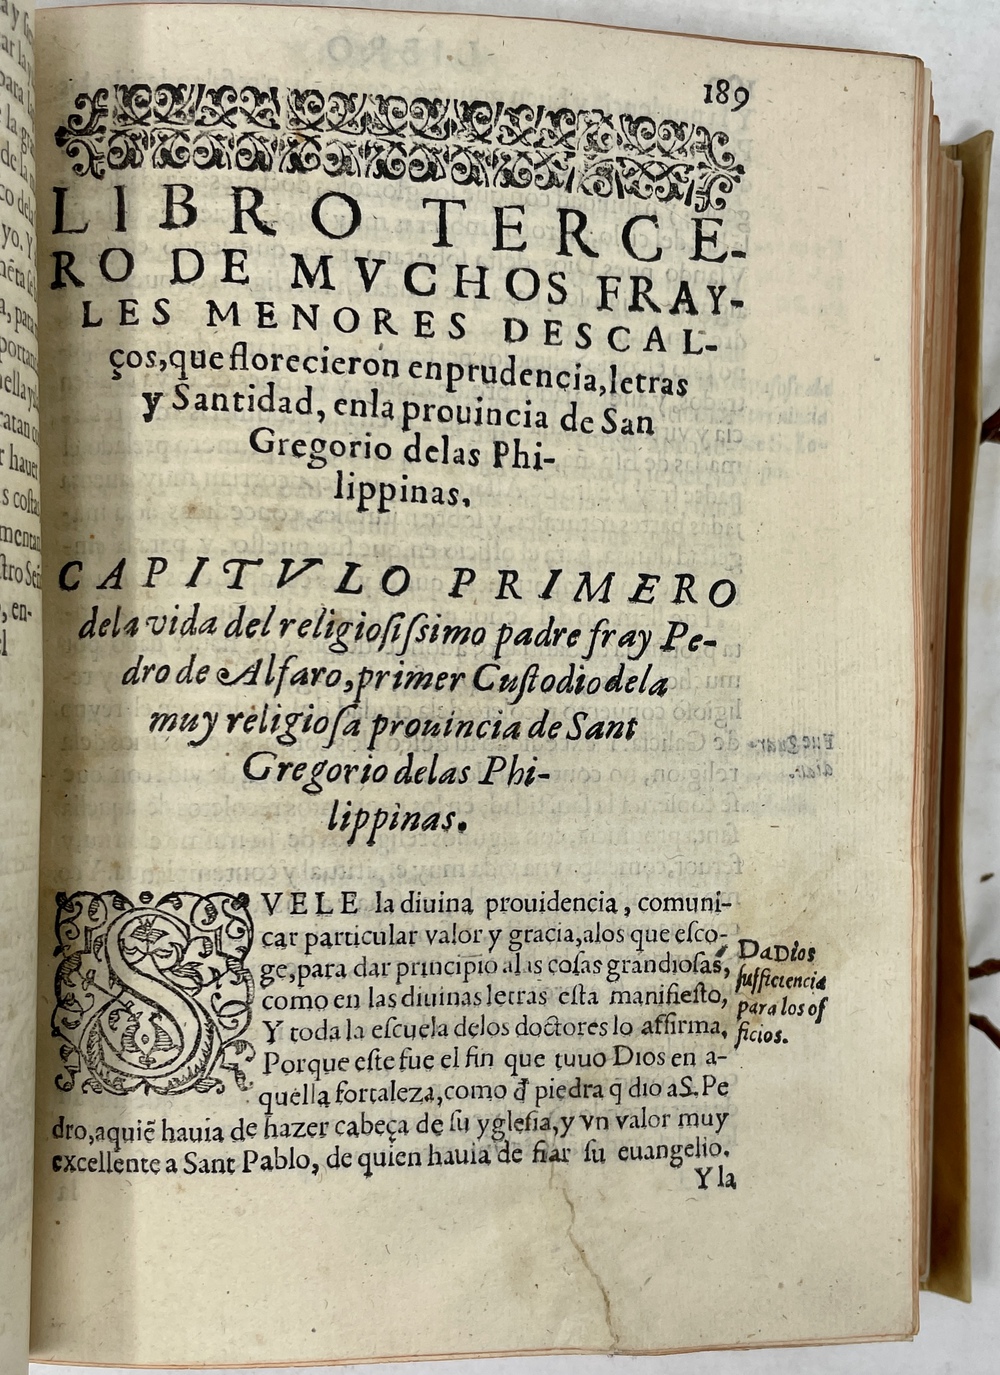 189
LIBRO TERCE-
RO DE MVCHOS FRAY-
LES MENORES DESCAL-
ços,que florecieron enprudencia,letras
y Santidad, enla prouincia de San
Gregorio delas Phi-
lippinas.
CAPITVLO PRIMERO
dela vida del religiosissimo padre fray Pe-
dro de Alfaro,primer Custodio dela
muy religiosa prouincia de Sant
Gregorio delas Phi-
lippinas.
SVELE la diuina prouidencia, comuni-
car particular valor y gracia,alos que esco-
ge,para dar principio alas cosas grandiosas,
como en las diuinas letras esta manifiesto,
Y toda la escuela delos doctores lo affirma.
Porque este fue el fin que tuuo Dios en a-
quella fortaleza,como đ piedra q̃ dio a S.Pe
dro,aquiẽ hauia de hazer cabeça de su yglesia,y vn valor muy
excellente a Sant Pablo, de quien hauia de fiar su euangelio.
Y la
Da Dios
sufficiencia
para los of
ficios.